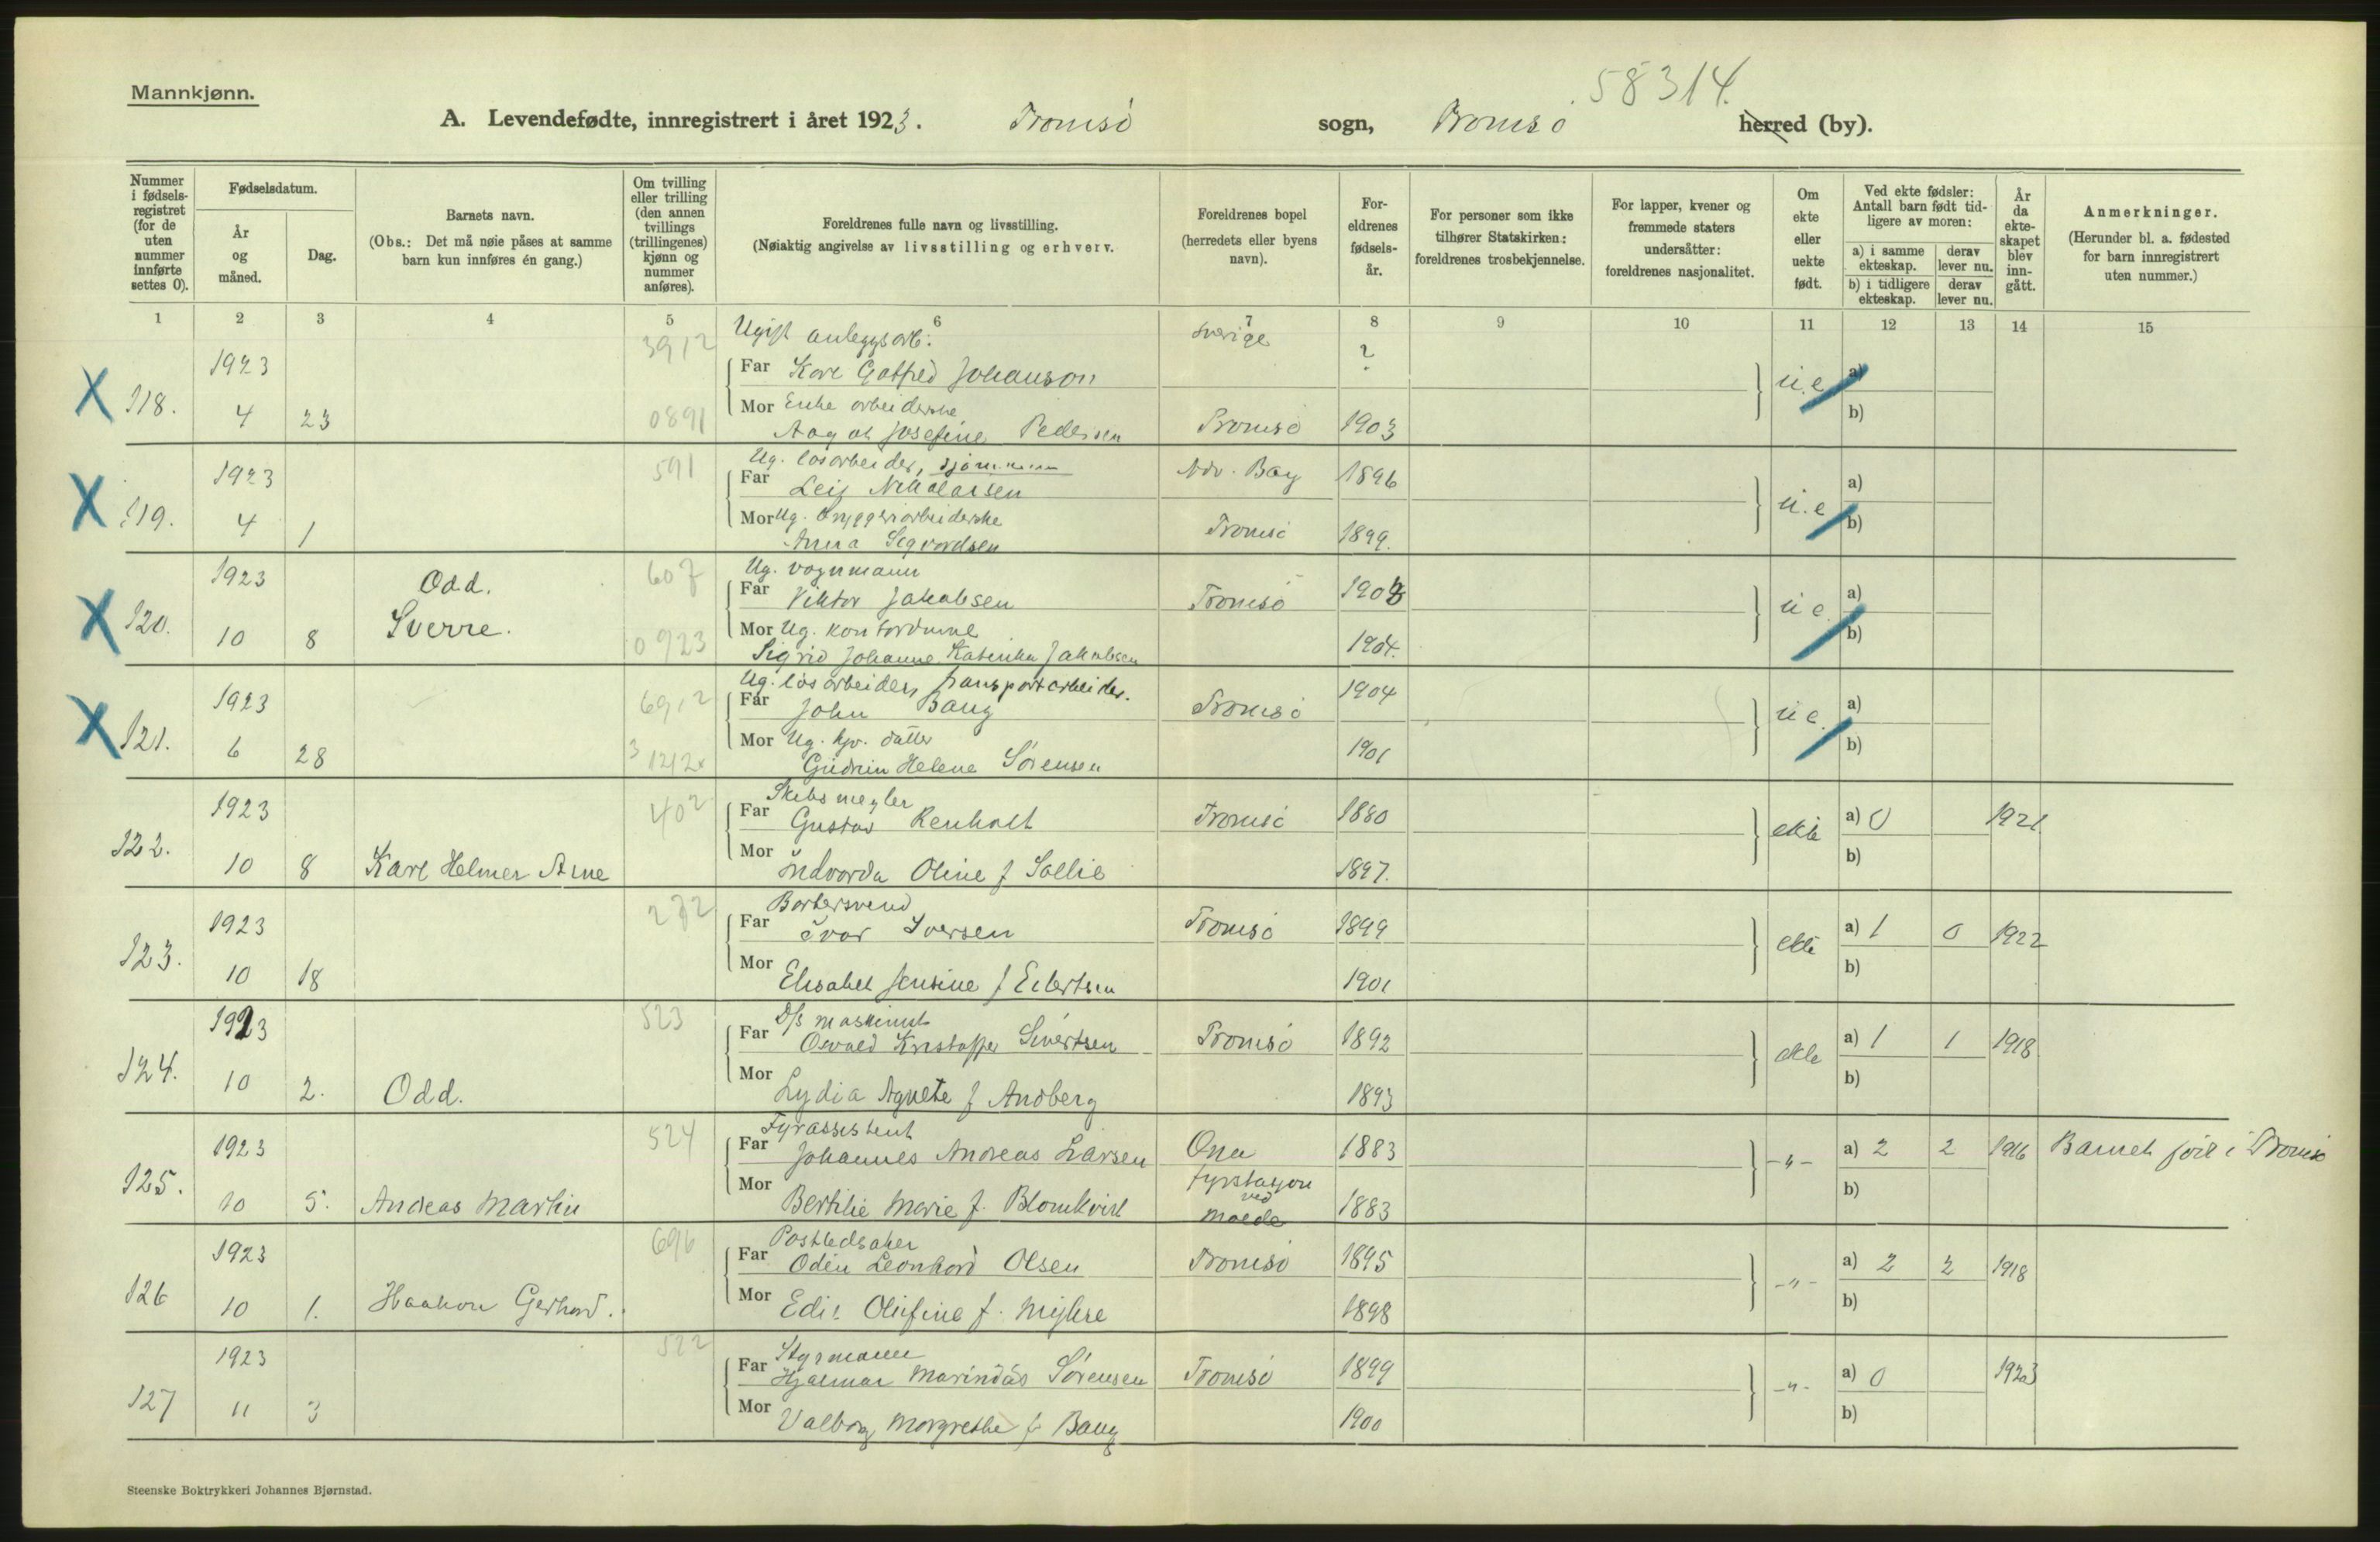 58314.
Mannkjønn.
A. Levendefødte, innregistrert i året 1923. Tromsö sogn, Tromsö herred (by).
Nummer i fødselsregistret (for de uten nummer innførte settes 0).
Fødselsdatum.
År og måned.
Dag.
Barnets navn.
(Obs.: Det må nøie påses at samme barn kun innføres én gang.)
Om tvilling eller trilling (den annen tvillings (trillingenes) kjønn og nummer anføres).
Foreldrenes fulle navn og livsstilling.
(Nøiaktig angivelse av livsstilling og erhverv.
Foreldrenes bopel (herredets eller byens navn).
Foreldrenes fødselsår.
For personer som ikke tilhører Statskirken: foreldrenes trosbekjennelse.
For lapper, kvener og fremmede staters undersåtter: foreldrenes nasjonalitet.
Om ekte eller uekte født.
Ved ekte fødsler: Antall barn født tidligere av moren:
a) i samme ekteskap. derav lever nu.
b) i tidligere ekteskap. derav lever nu.
År da ekteskapet blev inngått.
Anmerkninger.
(Herunder bl. a. fødested for barn innregistrert uten nummer.)
1 2 3 4 5 6 7 8 9 10 11 12 13 14 15
3912 Ugift anleggsarb. Sverige
1923 Far Kare Gotfred Johanson ? u.e a)
X 118. 4 23 0891 Mor Enke arbeiderske b)
Josefine Pedersen Tromsö 1903
591 Ug. løsarbeider, sjømann
1923 Far Leif Nikolaisen 1896 u.e a)
X 119. 4 1 Mor Ug. bryggeriarbeiderske b)
Anna Sigvardsen Tromsö 1899.
607 Ug. vognmann
1923 Odd. Far Viktor Jakobsen Tromsö u e. a)
X 120. 10 8 Sverre. 0923 Mor Ug. kontordame b)
Sigrid Johanne Katinka Jakobsen 1904.
Ug. løsarbeider, transportarbeider.
1923 6912 Far John Bang Tromsö 1904 u e. a)
X 121. 6 28 Mor Ug. hjv. datter b)
Gudrun Helene Sörensen 1901
402 Skibsmegler
1923 Far Gustav Renholt Tromsö 1880 ekte a) 0 1921
122. 10 8 Karl Helmer Arne Mor Indvarda Oline f Sollie 1897. b)
272 Barbersvend
1923 Far Ivar Iversen Tromsö 1899 ekte a) 1 0 1922
123. 10 18 Mor Elisabet Jensine f Eilertsen 1901 b)
523 D/s maskinist
1923 Far Osvald Kristoffer Sivertsen Tromsö 1892 ekte a) 1 1 1918
124. 10 2. Odd. Mor Lydia Agnete f Andberg 1893 b)
524 Fyrassistent
1923 Far Johannes Andreas Larsen Ona 1883 -"- a) 2 2 1916 Barnet född i Tromsö
125. 10 5. Andreas Martin Mor Bertilie Marie f. Blomkvist fyrstasjon ved Molde 1883 b)
696 Postbetjent
1923 Far Odin Leonhard Olsen Tromsö 1895 -"- a) 2 2 1918
126 10 1. Haakon Gerhard. Mor Edit Olufine f. Myhre 1898 b)
522 Styrmann
1923 Far Hjalmar Marindäs Sörensen Tromsö 1899 -"- a) 0 1923
127 11 3 Mor Valborg Margrethe f Bang 1900 b)
Steenske Boktrykkeri Johannes Bjørnstad.